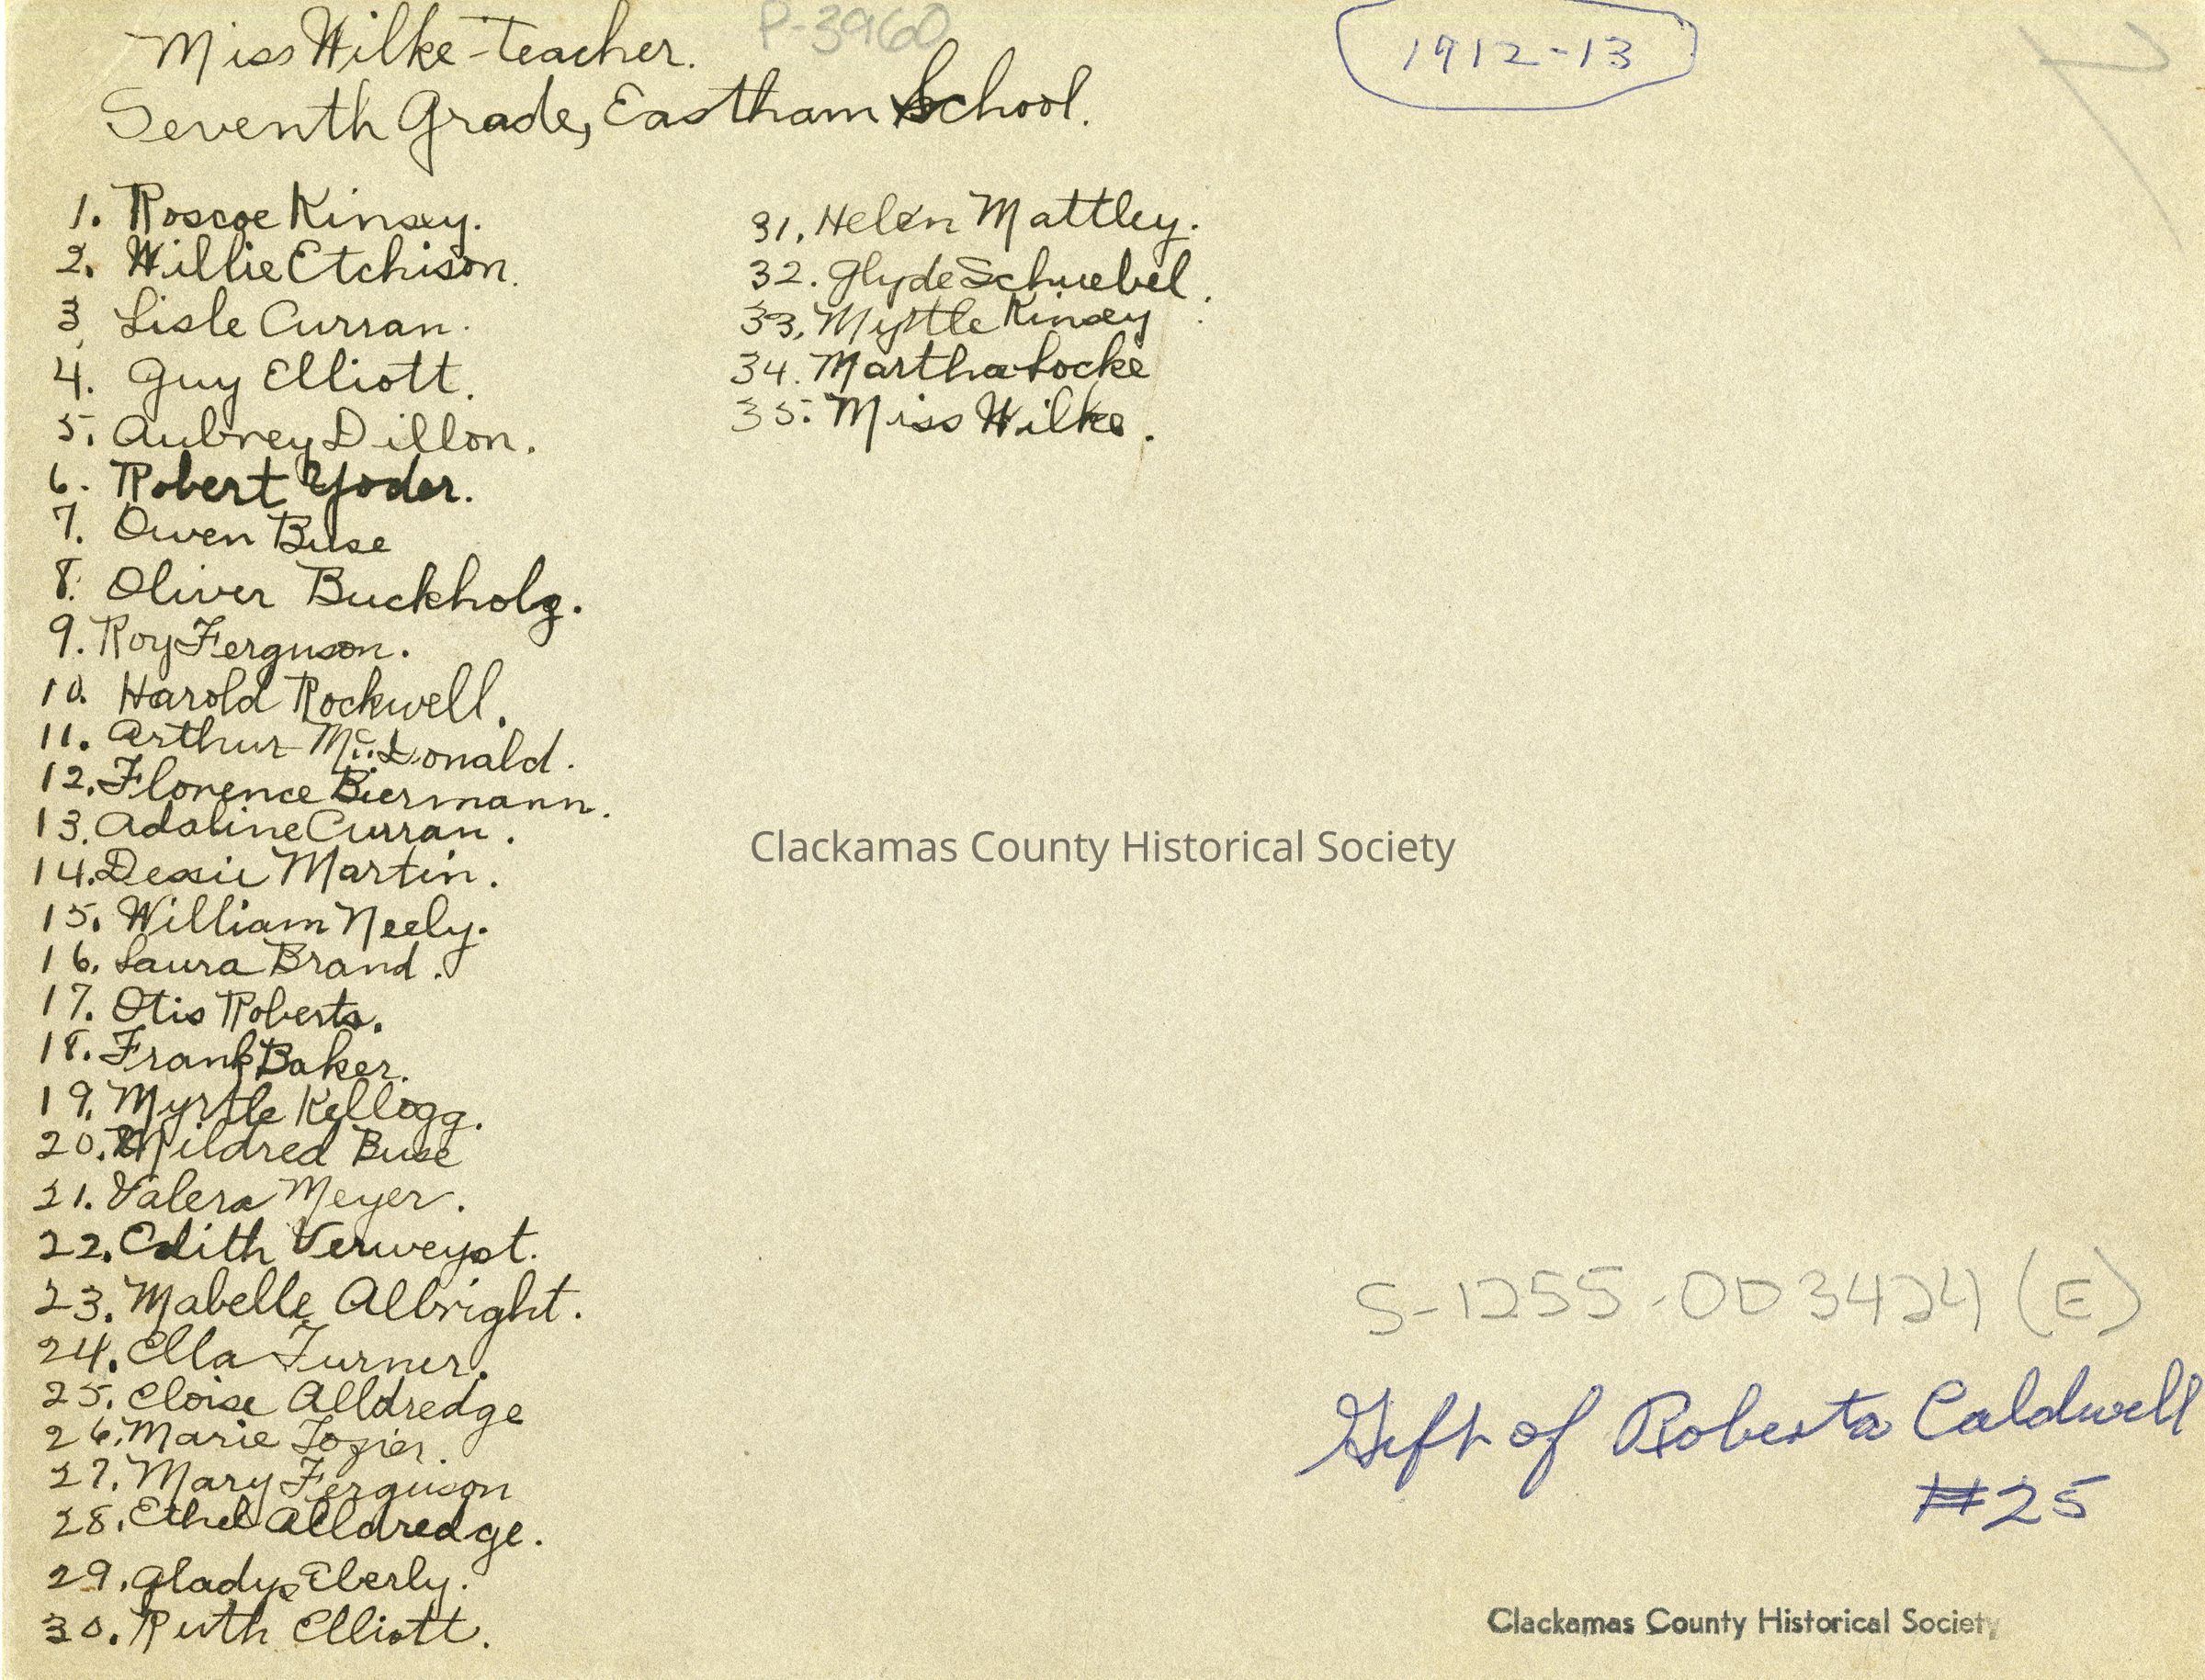 Miss Wilke - teacher.
P-3960
1912-13
Seventh Grade, Eastham School.
1. Roscoe Kinsey.
2. Willie Etchison.
3. Lisle Curran.
4. Guy Elliott.
5. Aubrey Dillon.
6. Robert Yoder.
7. Owen Buse
8. Oliver Buckholz.
9. Roy Ferguson.
10. Harold Rockwell.
11. Arthur McDonald.
12. Florence Biermann.
13. Adaline Curran.
14. Dessie Martin.
15. William Neely.
16. Laura Brand.
17. Otis Roberts.
18. Frank Baker.
19. Myrtle Kellogg.
20. Mildred Buse
21. Valera Meyer.
22. Edith Verweyst.
23. Mabelle Albright.
24. Ella Turner.
25. Eloise Alldredge
26. Marie Tozier.
27. Mary Ferguson
28. Ethel Alldredge.
29. Gladys Eberly.
30. Ruth Elliott.
31. Helen Mattley.
32. Glyde Schuebel.
33. Myrtle Kinsey.
34. Martha Locke
35. Miss Wilke.
Clackamas County Historical Society
S-1255-003424 (E)
Gift of Roberta Caldwell
#25
Clackamas County Historical Society